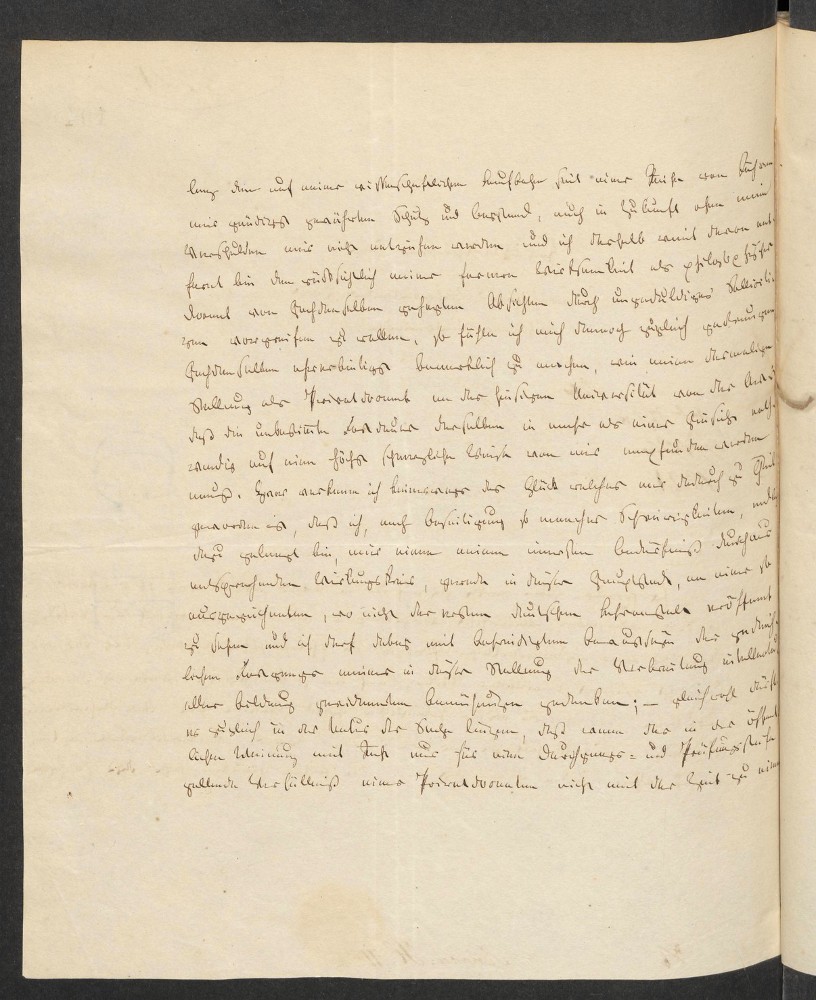 lung den auf meiner wissenschaftlichen Laufbahn seit einer Reihe von Jahren
mir gnädigst gewährten Schutz und Beystand, auch in Zukunft ohne mein
Verschulden mir nicht entziehen werden und ich deshalb weit davon ent-
fernt bin den rücksichtlich meiner ferneren Wirksamkeit als philosophischer
Docent von Hochdenselben gehegten Absichten durch ungeduldiges Solliciti-
ren vorgreifen zu wollen, so fühle ich mich dennoch zugleich gedrungen
Hochdenselben ehrerbietigst bemerklich zu machen, wie meine dermalige
Stellung als Privatdocent an der hiesigen Universität von der Art ist
daß die unbestimmte Fortdauer derselben in mehr als einer Hinsicht noth-
wendig auf eine höchst schmerzliche Weise von mir empfunden werden
muß. Zwar verkenne ich keineswegs das Glück welches mir dadurch zu Theil
geworden ist, daß ich, nach Beseitigung so mancher Schwierigkeiten, endlich
dazu gelangt bin, mir einen meinem innersten Bedürfniß durchaus
entsprechenden Wirkungskreis, gerade in dieser Hauptstadt, an einer so
ausgezeichneten, wo nicht der ersten deutschen Lehranstalt eröffnet
zu sehen und ich darf dabey mit befriedigtem Bewußtseyn des gedeih-
lichen Fortgangs meiner in dieser Stellung der Verbreitung intellectu-
eller Bildung gewidmeten Bemühungen gedenken; – gleichwohl dürfte
es zugleich in der Natur der Sache liegen, daß wenn das in der öffent-
lichen Meinung mit Recht nur für eine Durchgangs- und Prüfungsstufe
geltende Verhältniß eines Privatdocenten nicht mit der Zeit zu einem